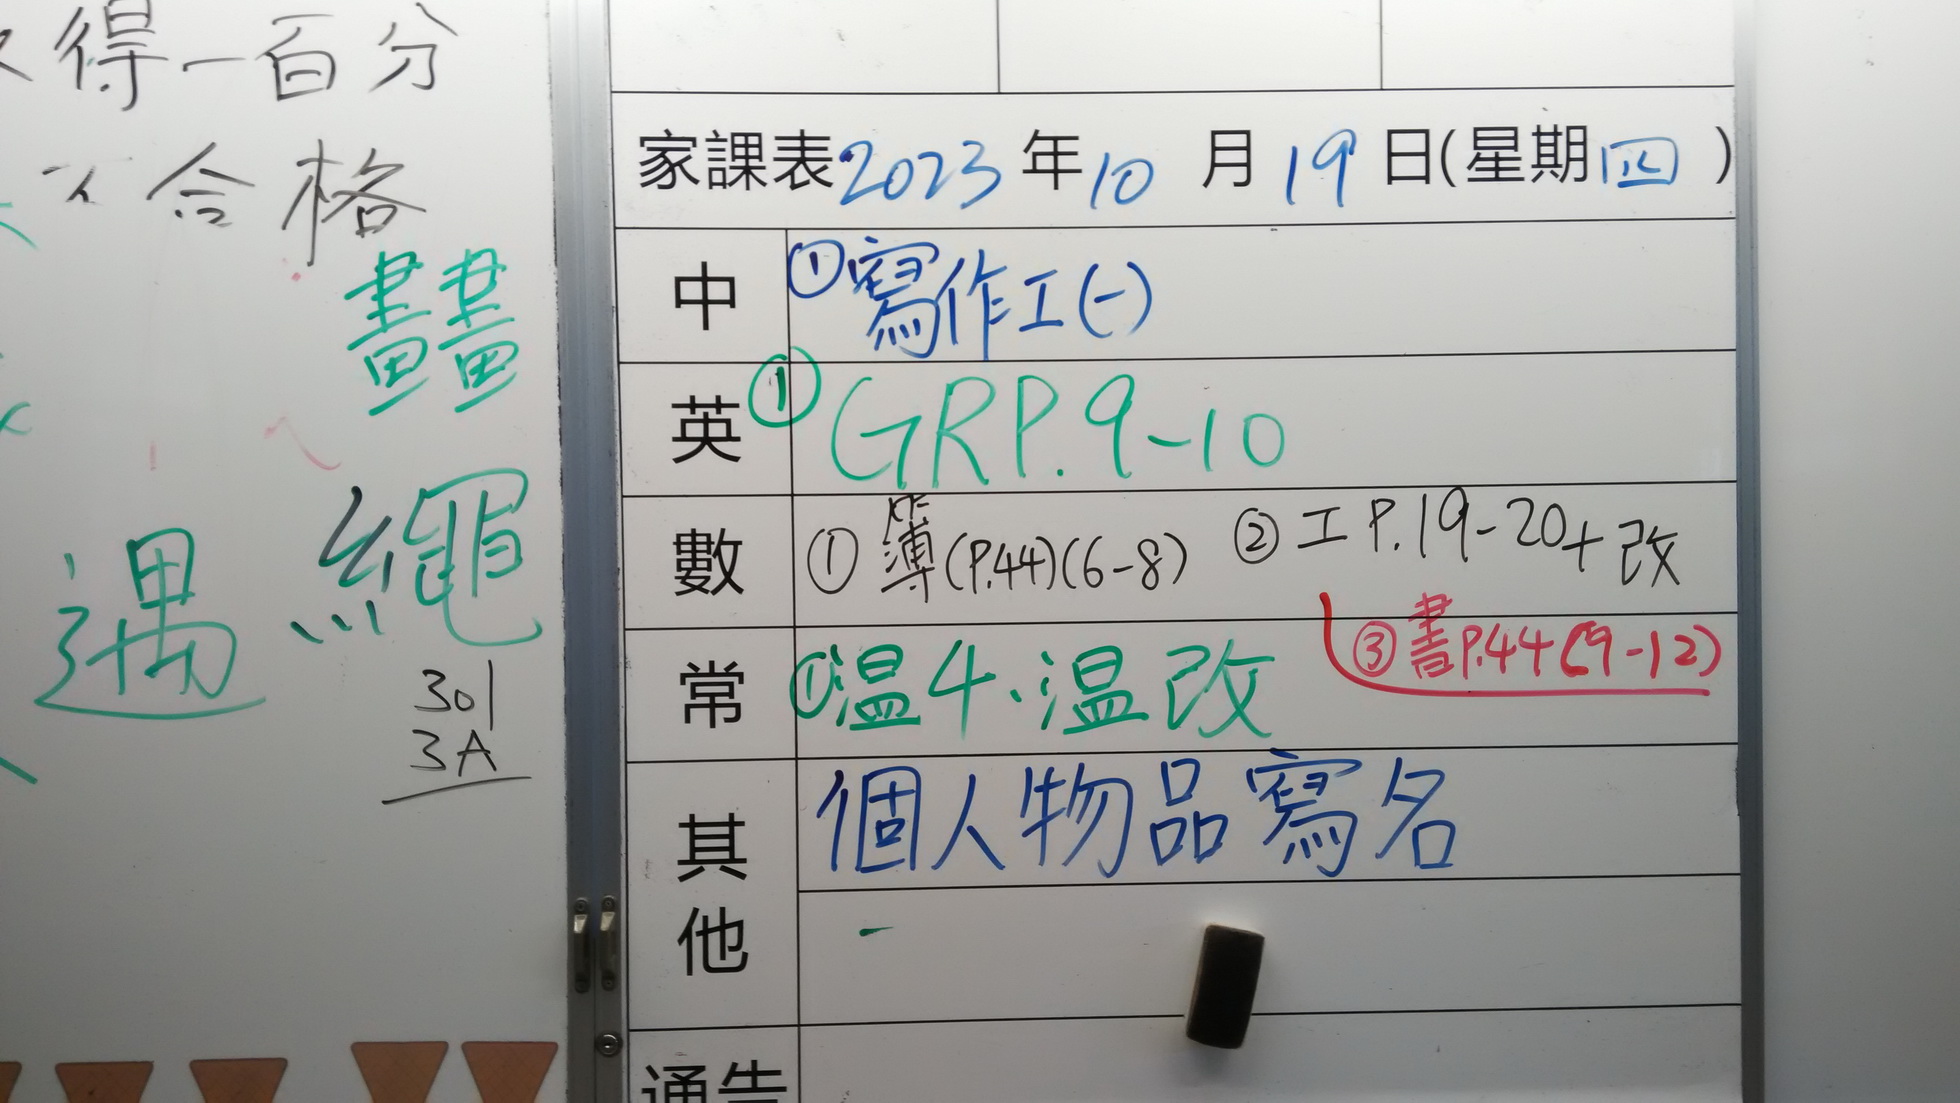 得一百分
合格
畫畫
繩
遇
301
3A
家課表2023年10月19日(星期四)
中 ①寫作工(一)
英 ①GRP.9-10
數 ①簿(P.44)(6-8) ②工P.19-20+改
③書P.44(9-12)
常 ①温4、温改
其他 個人物品寫名
通告